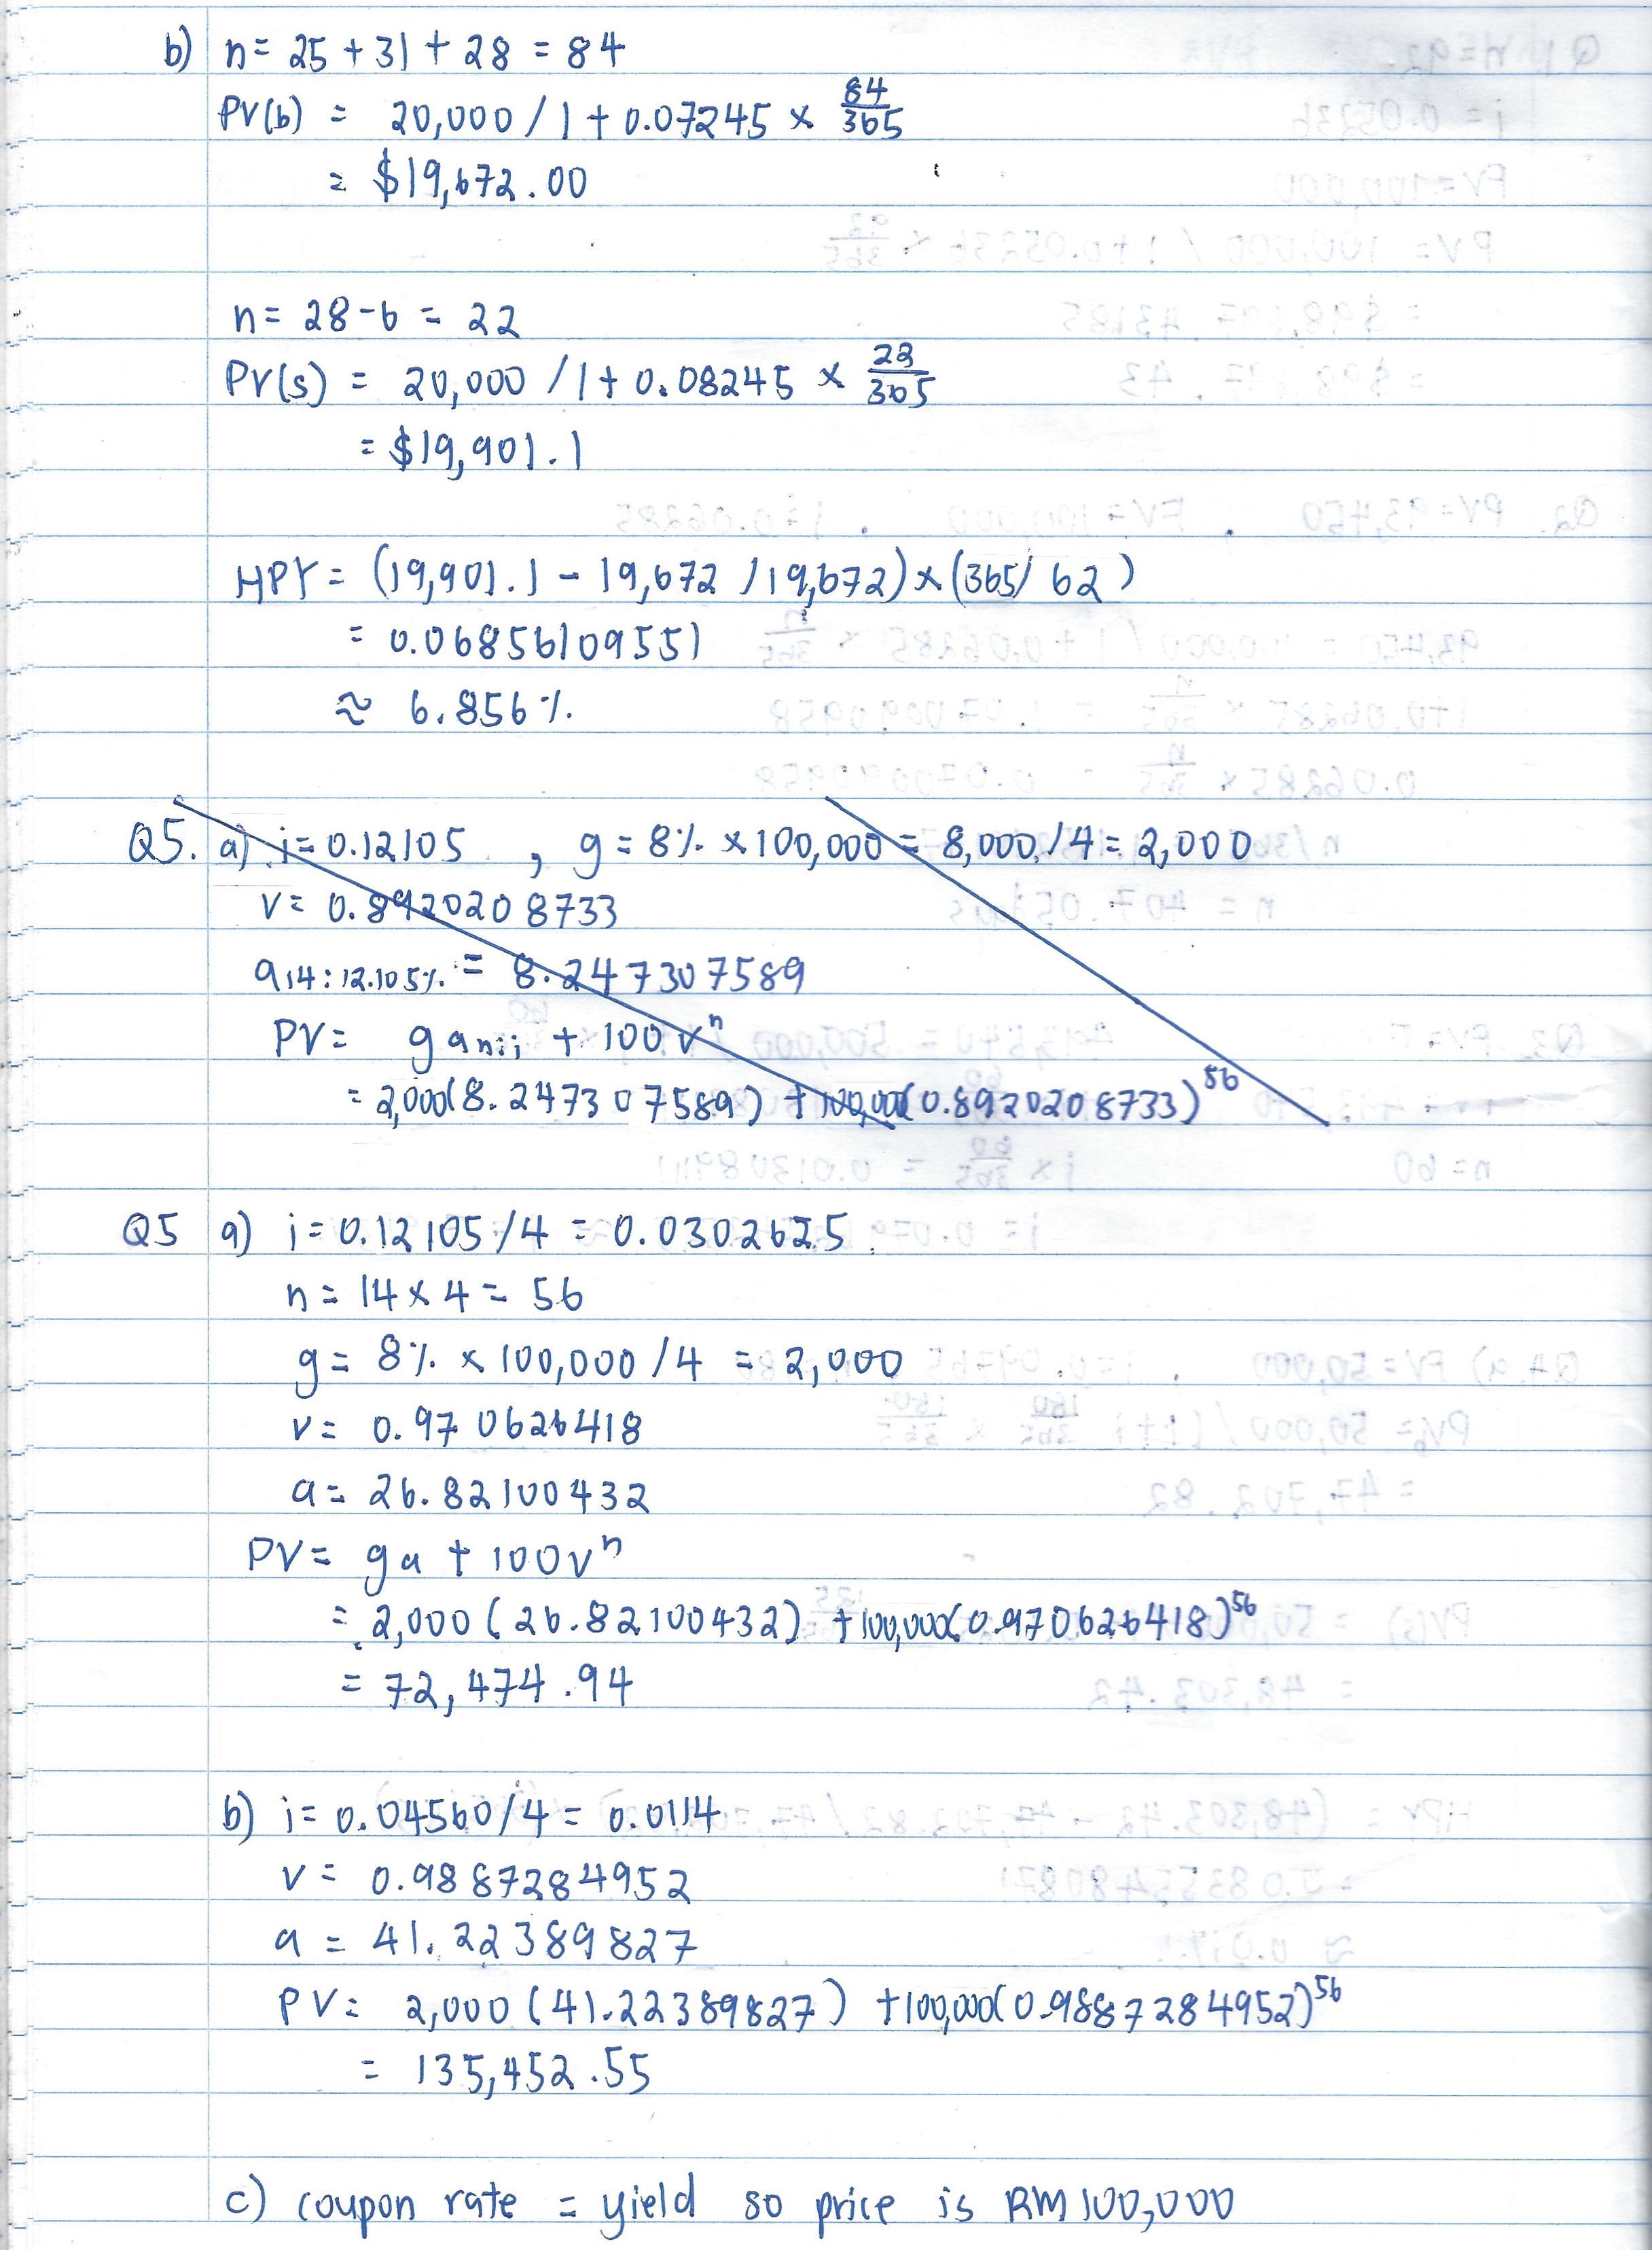 b) n = 25 + 31 + 28 = 84
PV(b) = 20,000 / 1 + 0.07245 × 84/365
= $19,672.00
n = 28 - 6 = 22
PV(s) = 20,000 / 1 + 0.08245 × 22/365
= $19,901.1
HPY = (19,901.1 - 19,672 / 19,672) × (365/62)
= 0.06856109551
≈ 6.856%
Q5. a) i = 0.12105 , g = 8% × 100,000 = 8,000/4 = 2,000
v = 0.8920208733
a14:12.105% = 8.247307589
PV = g an:i + 100 vⁿ
= 2,000(8.247307589) + 100,000(0.8920208733)⁵⁶
Q5 a) i = 0.12105/4 = 0.0302625
n = 14 × 4 = 56
g = 8% × 100,000/4 = 2,000
v = 0.970626418
a = 26.82100432
PV = ga + 100vⁿ
= 2,000(26.82100432) + 100,000(0.970626418)⁵⁶
= 72,474.94
b) i = 0.04560/4 = 0.0114
v = 0.9887284952
a = 41.22389827
PV = 2,000(41.22389827) + 100,000(0.9887284952)⁵⁶
= 135,452.55
c) coupon rate = yield so price is RM100,000